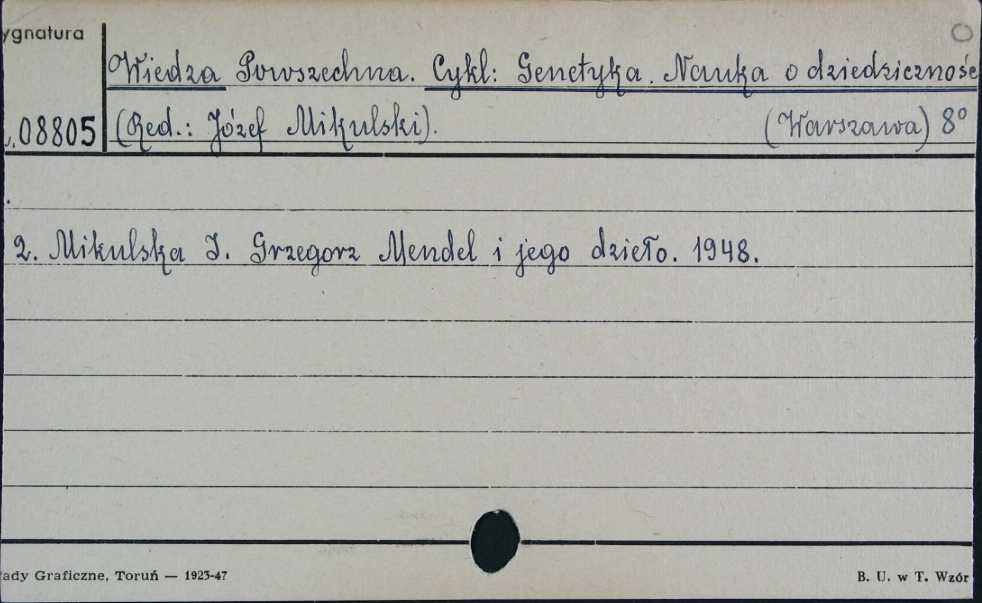 ygnatura
Wiedza Powszechna. Cykl: Genetyka. Nauka o dziedziczność
08805 (Red.: Józef Mikulski). (Warszawa) 8°
2. Mikulska I. Grzegorz Mendel i jego dzieło. 1948.
ady Graficzne, Toruń — 1923-47 B. U. w T. Wzór